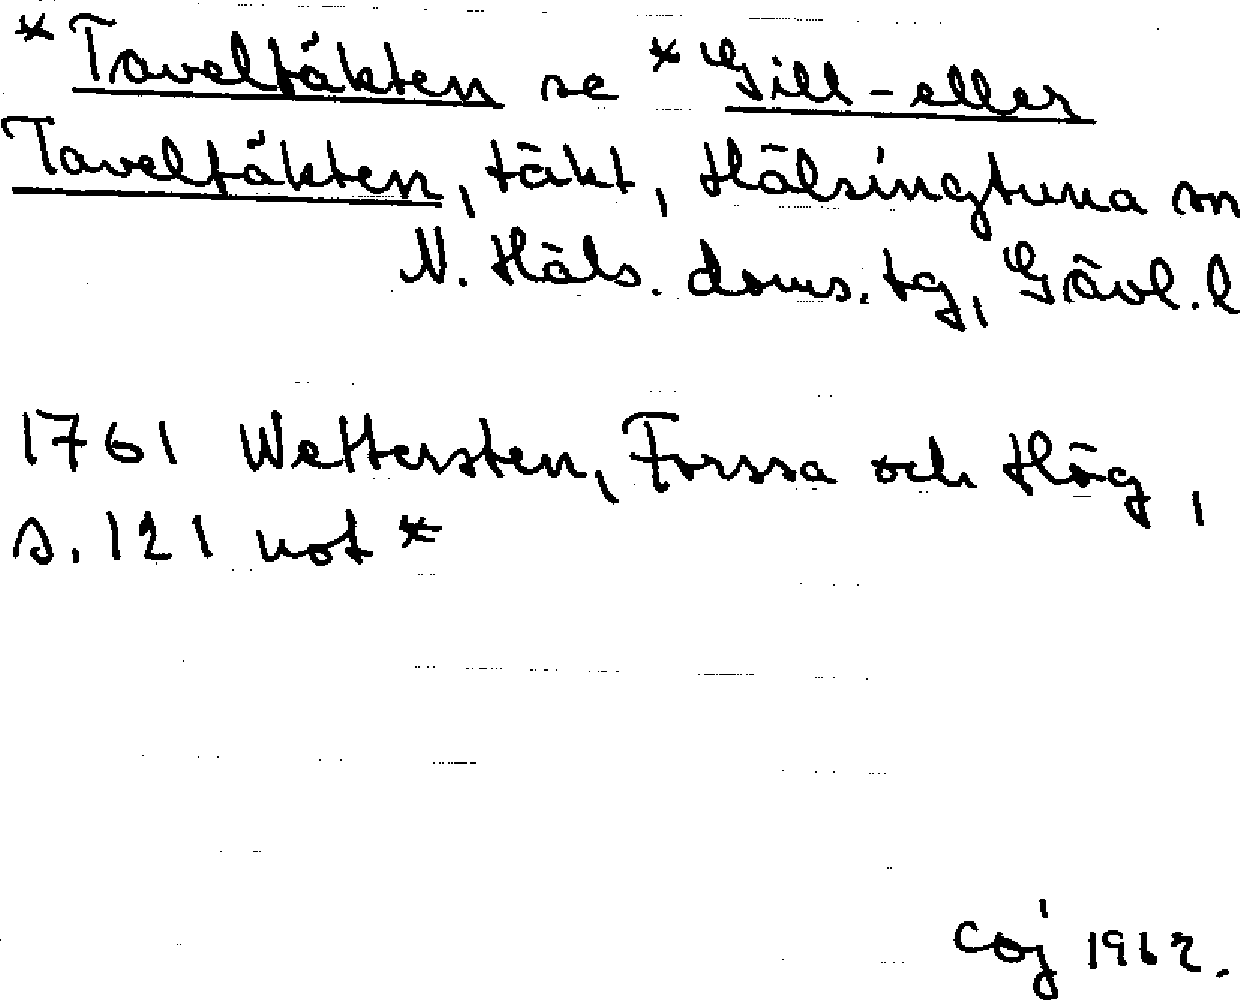 *Taveltäkten se *Gill- eller
Taveltäkten, täkt, Hälsingtuna sn
N. Häls. doms. tg, Gävl. l
1761 Wettersten, Forssa och Hög,
s. 121 not *
coj 1962.